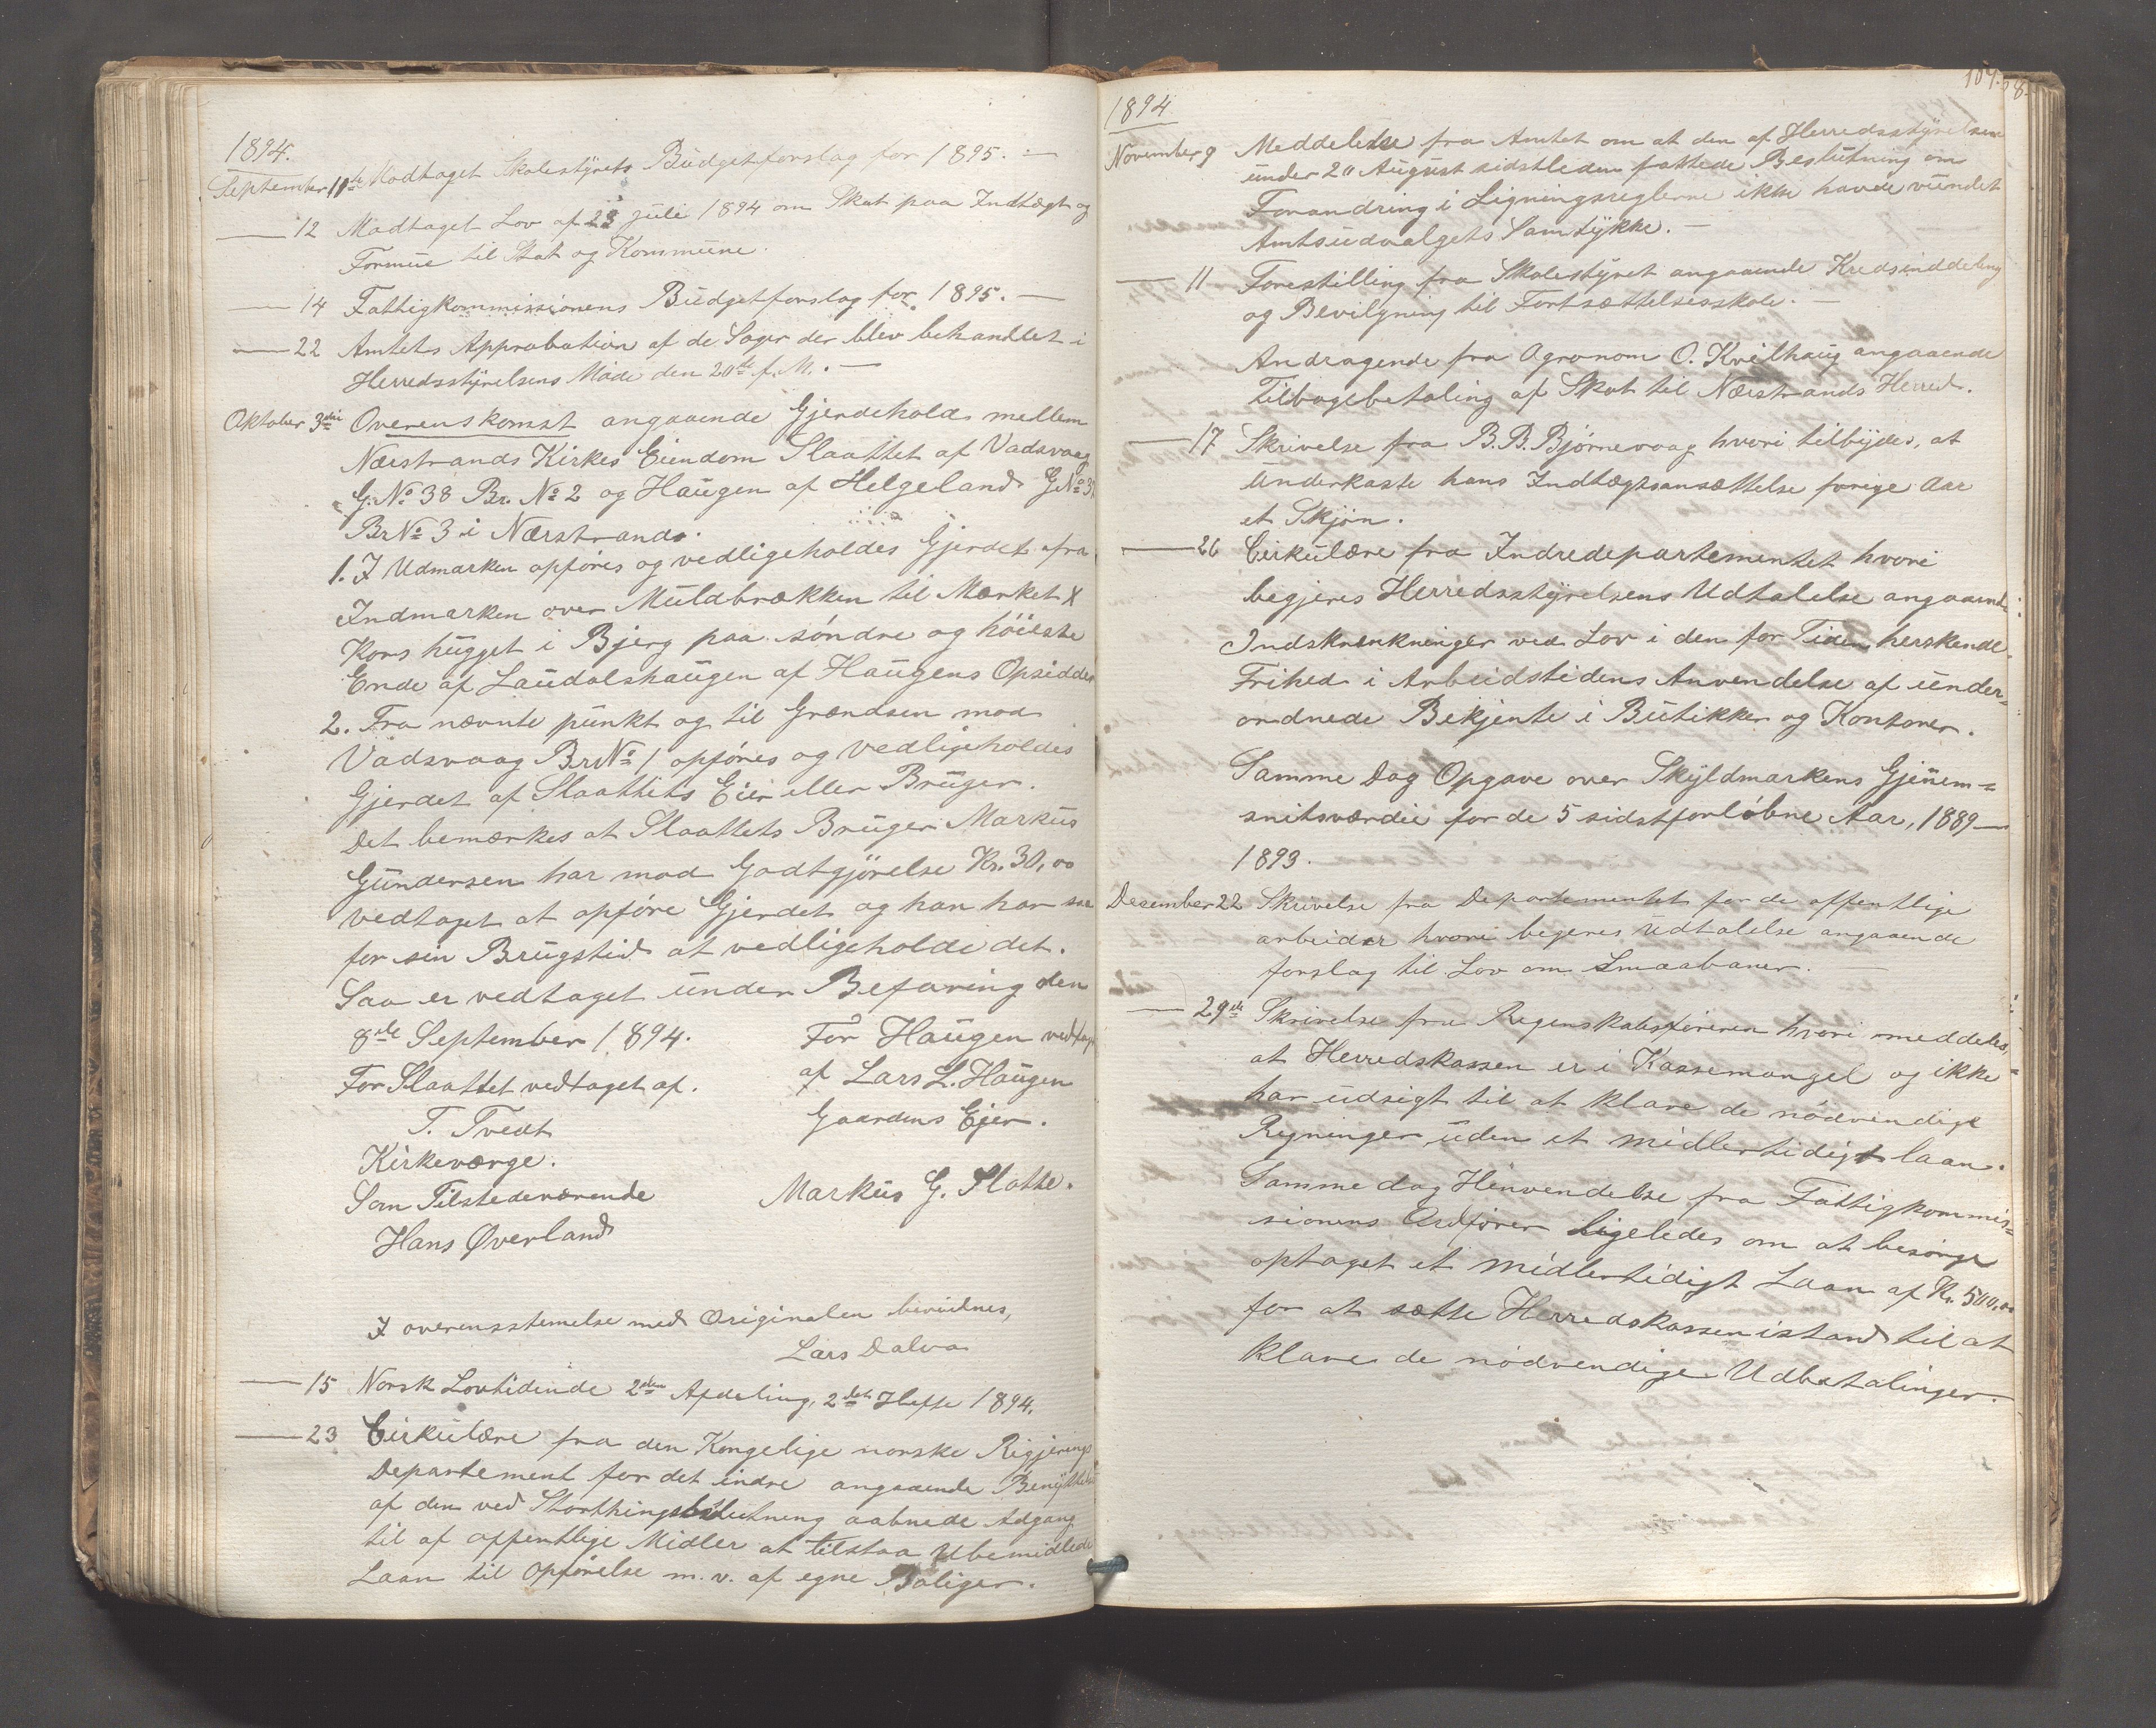 1894.
September 11te Modtaget Skolestyrets Budgetforslag for 1895. —
— 12 Modtaget Lov af 28 juli 1894 om Skat paa Indtægt og
Formue til Stat og Kommune.
— 14 Fattigkommissionens Budgetforslag for 1895. —
— 22 Amtets Approbation af de Sager der blev behandlet i
Herredsstyrelsens Møde den 20de f. M. —
Oktober 3die Overenskomst angaaende Gjerdehold mellem
Nærstrands Kirkes Eiendom Slaattet af Vadsvaag
G. No 38 Br. No 2 og Haugen af Helgeland G No 3
Br No 3 i Nærstrand.
1. I Udmarken opføres og vedligeholdes Gjerdet fra
Indmarken over Muldbrækken til Mærket X
Kors hugget i Bjerg paa søndre og höieste
Ende af Laudalshaugen af Haugens Opsidder
2. Fra nævnte punkt og til Grændsen mod
Vadsvaag Br No 1 opføres og vedligeholdes
Gjerdet af Slaattets Eier eller Bruger.
Det bemærkes at Slaattets Bruger Markus
Gundersen har mod Godtgjörelse Kr. 30,00
vedtaget at opföre Gjerdet og han har
for sin Brugstid at vedligeholde det.
Saa er vedtaget under Befaring den
8de September 1894.
For Slaattet vedtaget af.
T. Tvedt
Kirkeværge.
Som Tilstedeværende
Hans Øverland
For Haugen vedtaget
af Lars L. Haugen
Gaardens Ejer.
Markus G. Slatte.
I overensstemelse med Originalen bevidnes,
Lars Dalva
— 15 Norsk Lovtidinde 2den Afdeling, 2det Hefte 1894.
— 23 Cirkulære fra den Kongelige norske Rigjerings
Departement for det indre angaaende Benyttelse
af den ved Storthingsbeslutning aabnede Adgang
til af offentlige Midler at tilstaa Ubemidlede
Laan til Opførelse m. v. af egne Boliger.
1894
November 9 Meddelelse fra Amtet om at den af Herredsstyrelsen
under 20 August sidstleden fattede Beslutning om
Forandring i Ligningsreglerne ikke havde vundet
Amtsudvalgets Samtykke. —
— 11 Forestilling fra Skolestyret angaaende Kredsinddeling
og Bevilgning til Fortsættelsesskole. —
Andragende fra Agronom O. Kvilhaug angaaende
Tilbagebetaling af Skat til Nærstrands Herred.
— 17 Skrivelse fra B. B. Bjørnevaag hvori tilbydes, at
underkaste hans Indtægtsansættelse forige Aar
et Skjøn.
— 26 Cirkulære fra Indredepartementet hvori
begjeres Herredsstyrelsens Udtalelse angaaende
Indskrænkninger ved Lov i den for Tiden herskende
Frihed i Arbeidstidens Anvendelse af under-
ordnede Bekjente i Butikker og Kontorer.
Samme Dag Opgave over Skyldmarkens Gjenem-
snitsværdie for de 5 sidstforløbne Aar, 1889—
1893.
Desember 22 Skrivelse fra Departementet for de offentlige
arbeider hvori begeres Udtalelse angaaende
forslag til Lov om Smaabaner. —
— 29de Skrivelse fra Regenskabsføreren hvori meddeles,
at Herredskassen er i Kassemangel og ikke
har udsigt til at klare de nödvendige
Regninger uden et midlertidigt laan.
Samme dag Henvendelse fra Fattigkommis-
sionens Ordfører ligeledes om at besörge
optaget et midlertidigt Laan af Kr. 500,00
for at sætte Herredskassen istand til at
klare de nödvendige Udbetalinger.